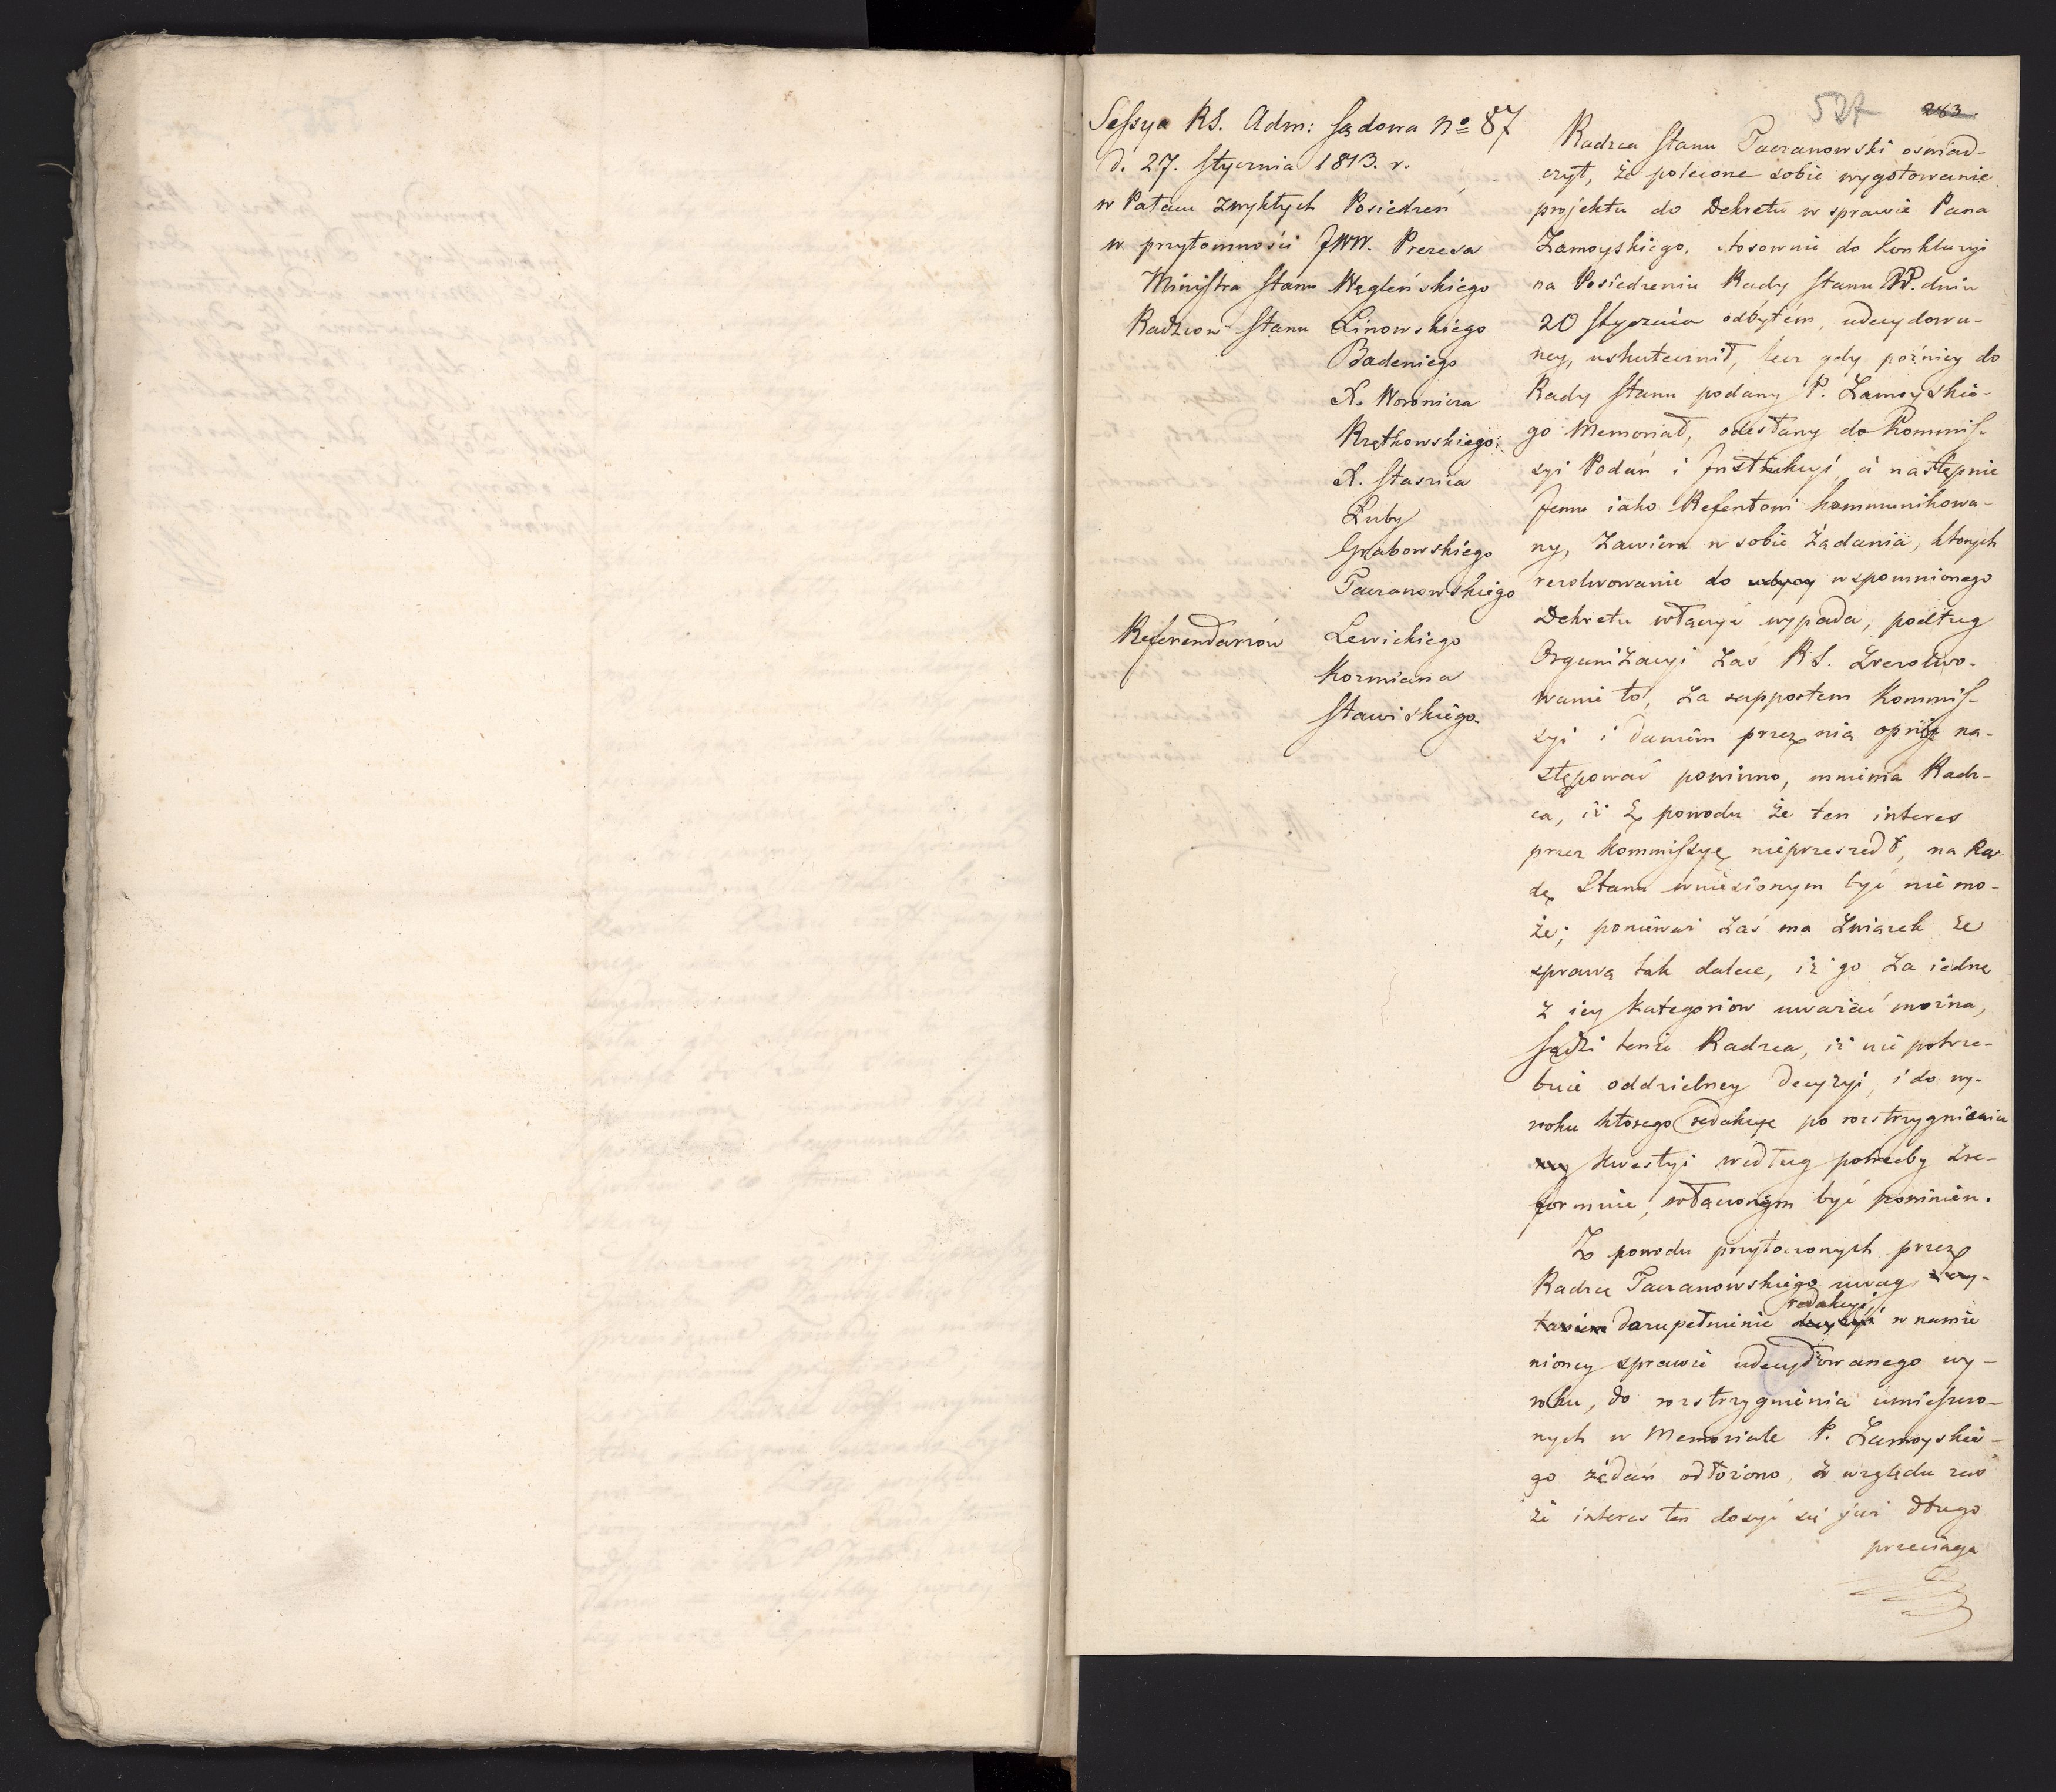 527 283
Sessya RS. Adm: Sądowa No 87
d. 27. Stycznia 1813. r.
w Pałacu zwykłych Posiedzeń
w przytomności JWW. Prezesa
Ministra Stanu Węgleńskiego
Radzcow Stanu Linowskiego
Badeniego
X. Woronicza
Krętkowskiego
X. Staszica
Łuby
Grabowskiego
Taczanowskiego
Referendarzów Lewickiego
Kozmiana
Stawiskiego.
Radzca Stanu Taczanowski oświad-
czył, że polecone sobie wygotowanie
projektu do Dekretu w sprawie Pana
Zamoyskiego, stosownie do Konkluzyi
na Posiedzeniu Rady Stanu dniu
20 Stycznia odbytém, udecydowa-
ney, uskutecznił, lecz gdy poźniey do
Rady Stanu podany P. Zamoyskie-
go Memoriał, odesłany do Kommis-
syi Podań i Instrukcyi, a następnie
Jemu iako Referentowi kommunikowa-
ny, zawiera w sobie żądania, ktorych
rezolwowanie do wspomnionego
Dekretu włączyć wypada, podług
Organizacyi zaś RS. zrezolwo-
wanie to, za rapportem Kommis-
syi i daném przez nią opinii na-
stępować powinno, mniema Radz-
ca, iż z powodu że ten interes
przez Kommissyę nieprzeszedł, na Ra-
dę Stanu wniesionym być nie mo-
że; ponieważ zaś ma związek ze
sprawą tak dalece, iż go za iednę
z iey kategoriow uważać można,
sądzi tenże Radzca, iż nie potrze-
buie oddzielney decyzyi, i do wy-
roku ktorego redakcye po rozstrzygnieniu
kwestyi według potrzeby zre-
formuie, włączonym być powinien.
Z powodu przytoczonych przez
Radzcę Taczanowskiego uwag,
redakcyi
dozupełnienie w namie
nioney sprawie udecydowanego wy-
roku, do rozstrzygnienia umieszczo-
nych w Memoriale P. Zamoyskie-
go żądań odłożono, z względu zaś
że interes ten dosyć się już długo
przeciąga